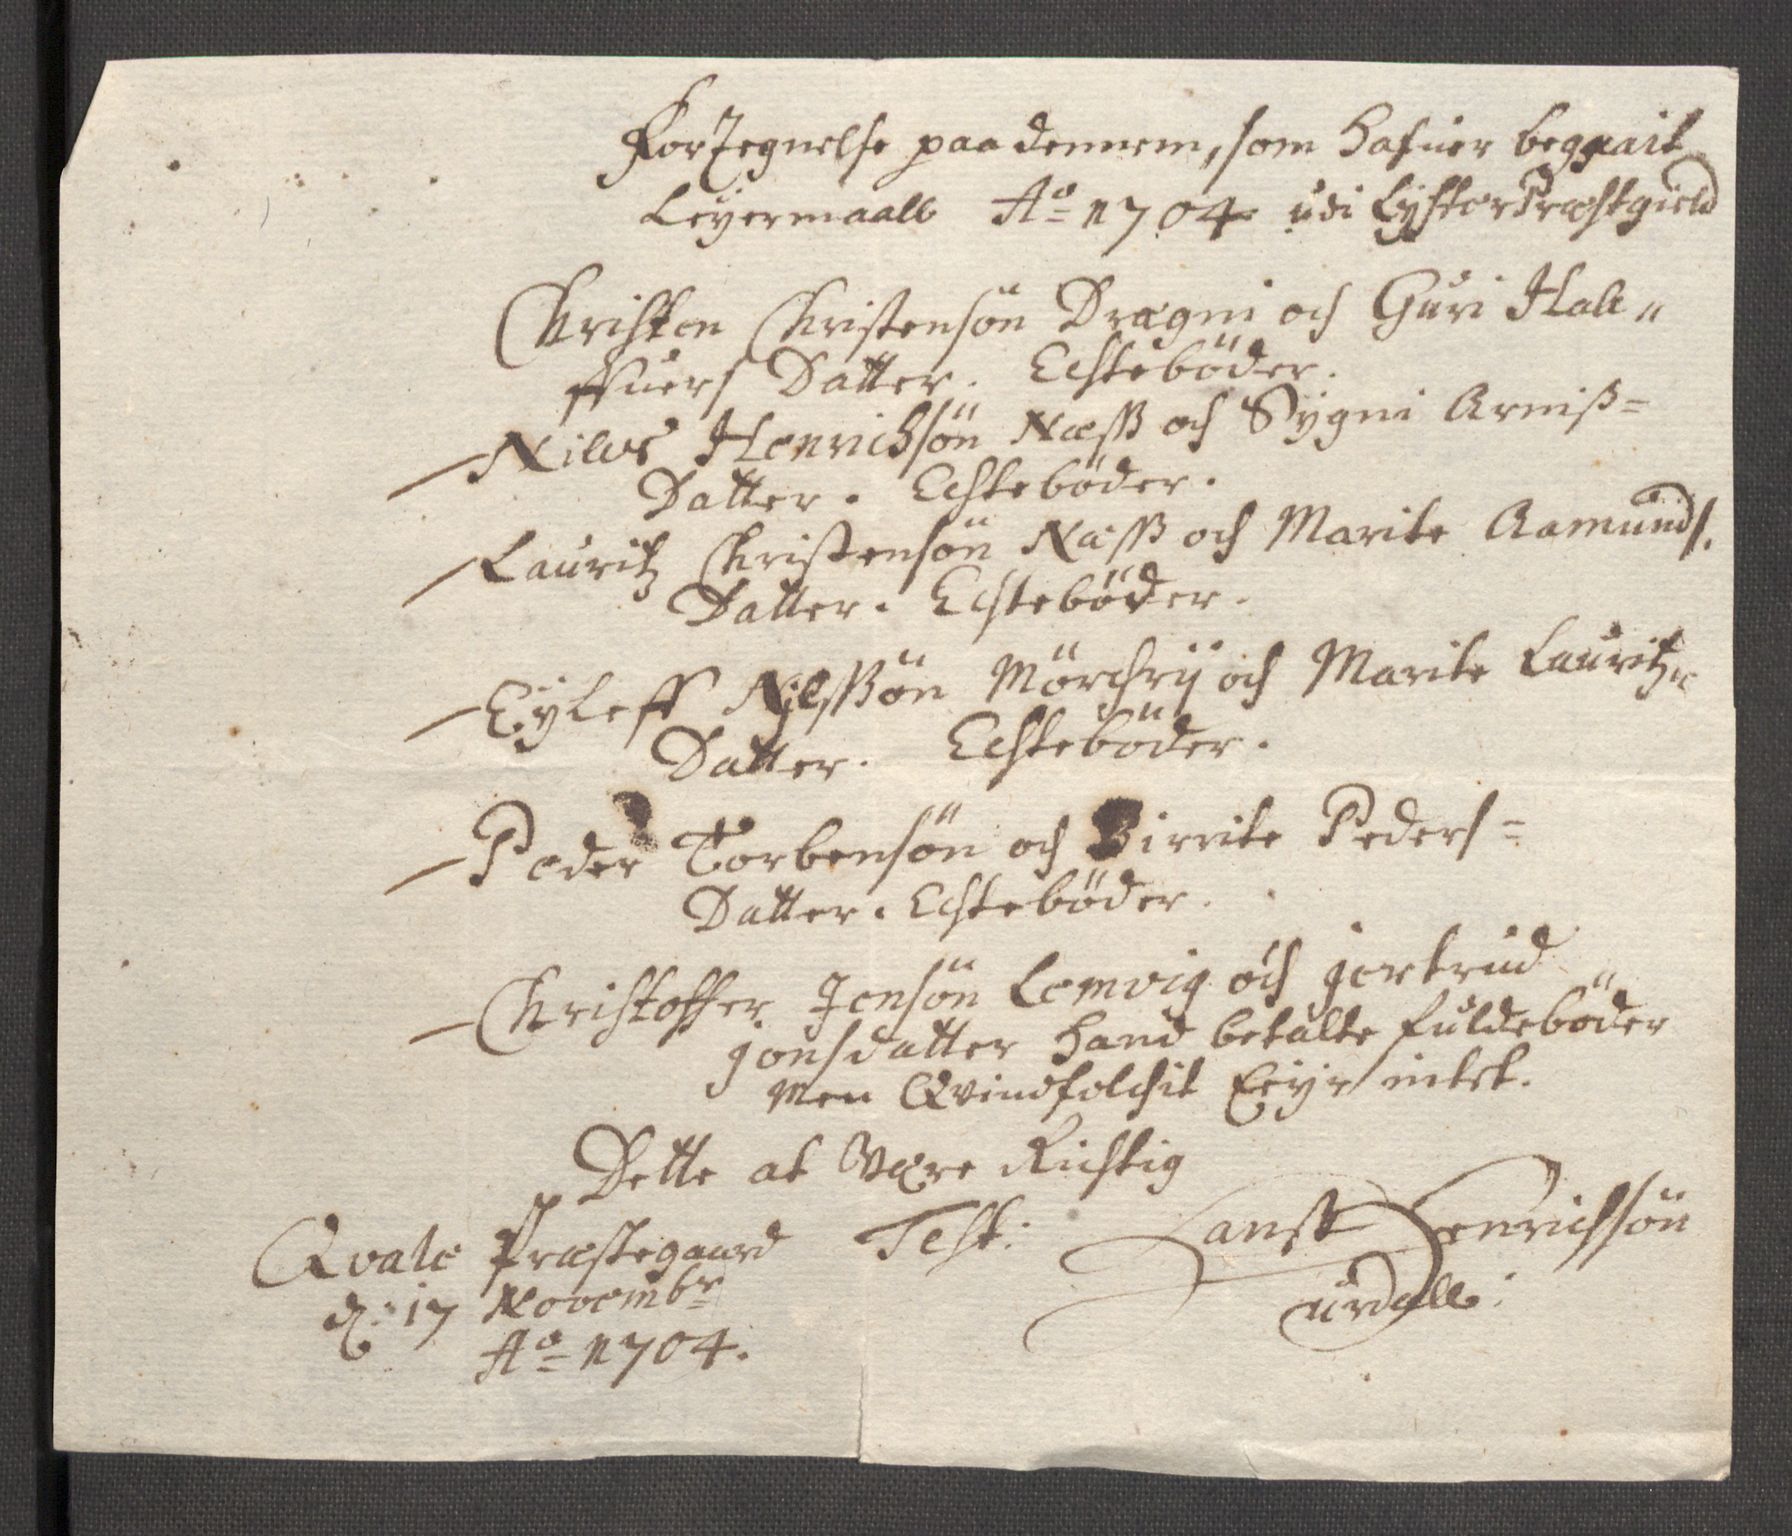 ForTegnelse paa dennem, som hafuer begaait
Leyermaall Ao 1704 udi Lyster Præstgield
Christen Christensön Drægni och Guri Hall„
ffuers Datter. Echteböder.
Nilss Henrichsön Næss och Sygni Arniß=
Datter. Echteböder.
Lauritz Christensön Næss och Marite Aamunds.
Datter. Echteböder.
Eyleff Nilssön Mörchrij och Marite Lauritz„
Datter. Echteböder.
Peder Torbensön och Birrite Peders=
Datter. Echteböder.
Christoffer Jensön Lemvig och Jertrud
Jonsdatter hand betalte fuldeböder
Men Qvindfolchit Eeyr intet.
Dette at Være Richtig
Test:
Qvale Præstegaard
d: 17 Novembr
Ao 1704.
Hanss Henrichsön
urdall: